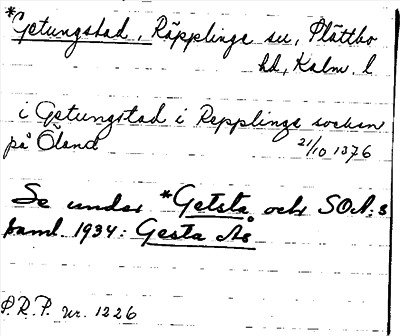 *Getungstad, Räpplinge sn, Slättbo
hd, Kalm. l
i Getungstad i Repplinge socken
på Öland 21/10 1376
Se under *Getsta och SOA:s
saml. 1934: Gesta Ås
P.R.P. nr. 1226